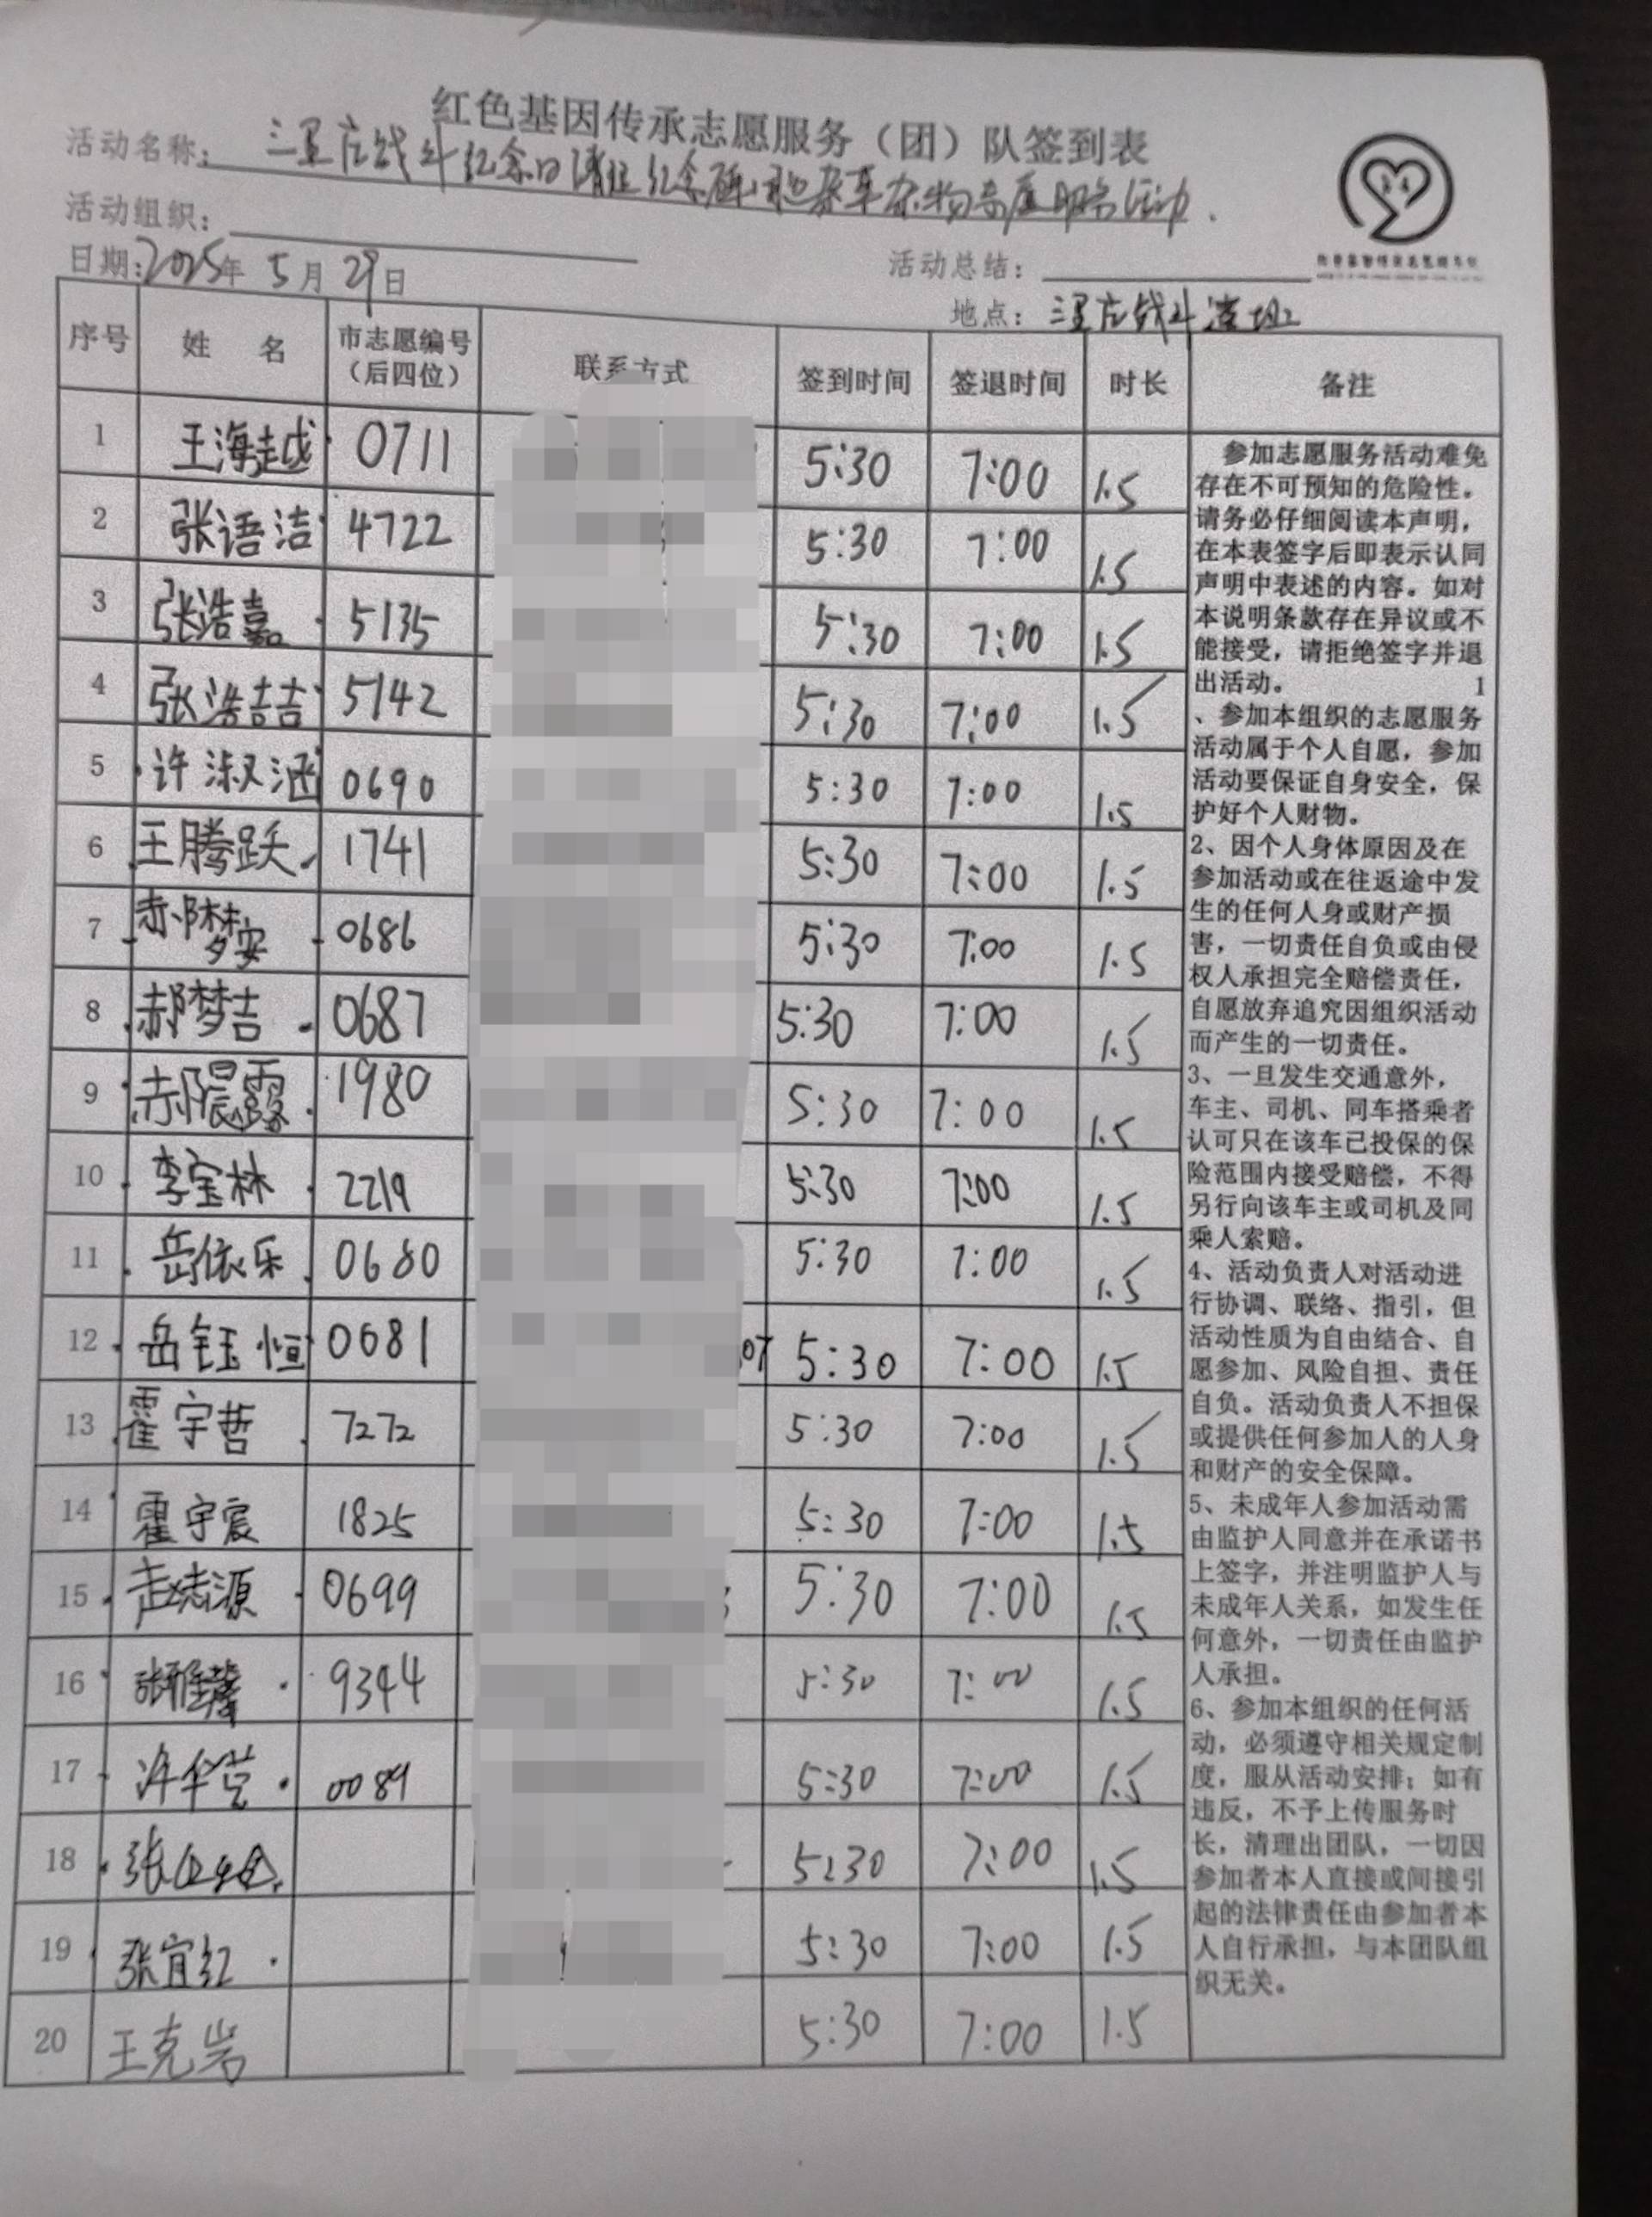 红色基因传承志愿服务（团）队签到表
活动名称： 三里庄战斗纪念日清理纪念碑 杂草杂物志愿服务活动.
活动组织：
日期：2025年 5月 29日
活动总结：
地点： 三里庄战斗遗址
序号 姓 名 市志愿编号（后四位） 联系方式 签到时间 签退时间 时长 备注
1 王海越 0711 5:30 7:00 1.5
2 张语洁 4722 5:30 7:00 1.5
3 张浩嘉 5135 5:30 7:00 1.5
4 张浩喆 5142 5:30 7:00 1.5
5 许淑涵 0690 5:30 7:00 1.5
6 王腾跃 1741 5:30 7:00 1.5
7 郝梦安 0686 5:30 7:00 1.5
8 郝梦吉 0687 5:30 7:00 1.5
9 郝晨露 1980 5:30 7:00 1.5
10 李宝林 2219 5:30 7:00 1.5
11 岳依乐 0680 5:30 7:00 1.5
12 岳钰恒 0681 07 5:30 7:00 1.5
13 霍宇哲 7272 5:30 7:00 1.5
14 霍宇宸 1825 5:30 7:00 1.5
15 赵志源 0699 5:30 7:00 1.5
16 张雅馨 9344 5:30 7:00 1.5
17 许华芸 0089 5:30 7:00 1.5
18 张 5:30 7:00 1.5
19 张宜红 5:30 7:00 1.5
20 王克岩 5:30 7:00 1.5
参加志愿服务活动难免
存在不可预知的危险性。
请务必仔细阅读本声明，
在本表签字后即表示认同
声明中表述的内容。如对
本说明条款存在异议或不
能接受，请拒绝签字并退
出活动。 1
、参加本组织的志愿服务
活动属于个人自愿，参加
活动要保证自身安全，保
护好个人财物。
2、因个人身体原因及在
参加活动或在往返途中发
生的任何人身或财产损
害，一切责任自负或由侵
权人承担完全赔偿责任，
自愿放弃追究因组织活动
而产生的一切责任。
3、一旦发生交通意外，
车主、司机、同车搭乘者
认可只在该车已投保的保
险范围内接受赔偿，不得
另行向该车主或司机及同
乘人索赔。
4、活动负责人对活动进
行协调、联络、指引，但
活动性质为自由结合、自
愿参加、风险自担、责任
自负。活动负责人不担保
或提供任何参加人的人身
和财产的安全保障。
5、未成年人参加活动需
由监护人同意并在承诺书
上签字，并注明监护人与
未成年人关系，如发生任
何意外，一切责任由监护
人承担。
6、参加本组织的任何活
动，必须遵守相关规定制
度，服从活动安排；如有
违反，不予上传服务时
长，清理出团队，一切因
参加者本人直接或间接引
起的法律责任由参加者本
人自行承担，与本团队组
织无关。